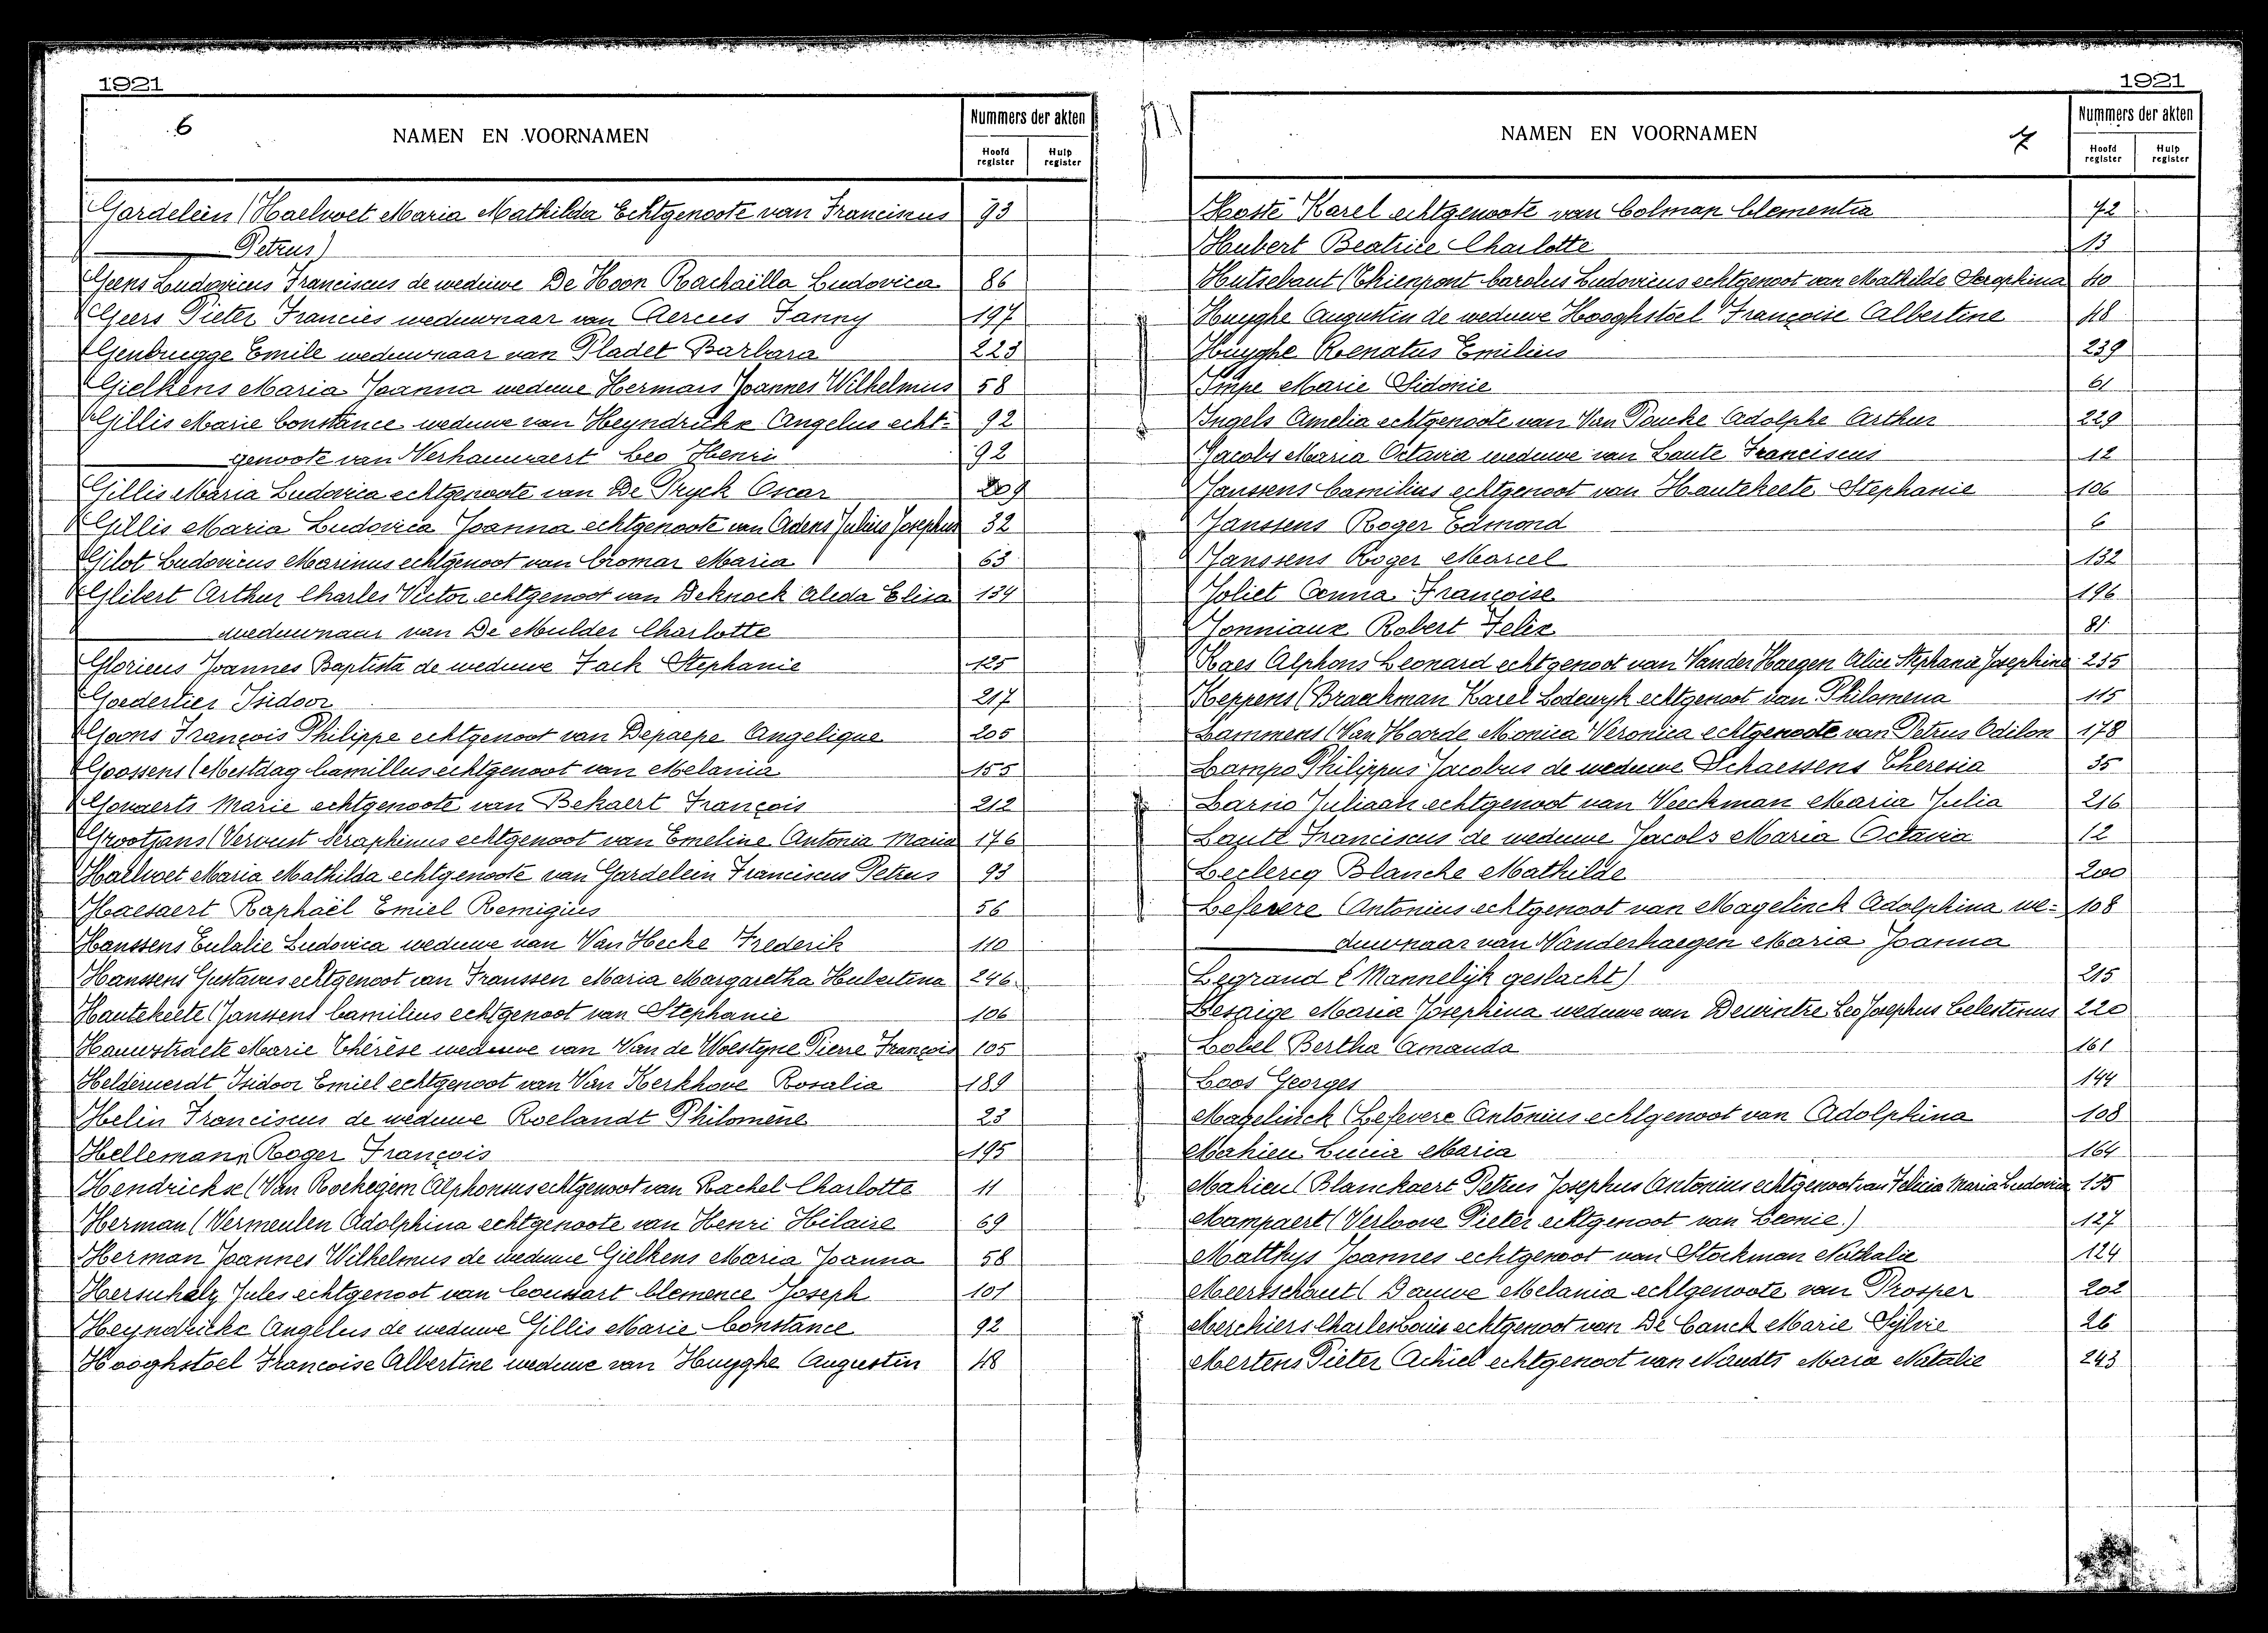 1921
6
NAMEN EN VOORNAMEN
Nummers der akten
Hoofd register
Hulp register
Gardelein (Haelvoet Maria Mathilda Echtgenoote van Francinus 93
Petrus)
Geens Ludovicus Franciscus de weduwe De Hoon Rachaëlla Ludovica 86
Geers Pieter Francies weduwnaar van Aercus Fanny 197
Genbrugge Emile weduwnaar van Pladet Barbara 223
Gielkens Maria Joanna weduwe Hermans Joannes Wilhelmus 58
Gillis Marie Constance weduwe van Heyndrickx Angelus echt- 92
genoote van Verhauwaert Leo Henri 92
Gillis Maria Ludovica echtgenoote van De Pryck Oscar 209
Gillis Maria Ludovica Joanna echtgenoote van Adens Julius Josephus 32
Gilot Ludovicus Marinus echtgenoot van Cromar Maria 63
Glibert Arthur Charles Victor echtgenoot van Deknock Aleda Elisa 134
weduwnaar van De Mulder Charlotte
Glorieus Joannes Baptista de weduwe Fack Stephanie 125
Goedertier Isidoor 217
Goons François Philippe echtgenoot van Depaepe Angelique 205
Goossens (Mestdag Camillus echtgenoot van Melania 155
Govaerts Marie echtgenoote van Bekaert François 212
Grootjans (Vervust Seraphinus echtgenoot van Emeline Antonia Maria 176
Haelvoet Maria Mathilda echtgenoote van Gardelein Franciscus Petrus 93
Haesaert Raphaël Emiel Remigius 56
Hanssens Eulalie Ludovica weduwe van Van Hecke Frederik 110
Hanssens Gustavus echtgenoot van Franssen Maria Margaretha Hubertina 246
Hautekeete (Janssens Camilius echtgenoot van Stephanie 106
Hauwstraete Marie Thérèse weduwe van Van de Woestyne Pierre François 105
Helderweirdt Isidoor Emiel echtgenoot van Van Kerkhove Rosalia 189
Helin Franciscus de weduwe Roelandt Philomène 23
Hellemann Roger François 195
Hendrickse (Van Rockegem Alphonsus echtgenoot van Rachel Charlotte 11
Herman (Vermeulen Adolphina echtgenoote van Henri Hilaire 69
Herman Joannes Wilhelmus de weduwe Gielkens Maria Joanna 58
Hersuhalz Jules echtgenoot van Coussart Clemence Joseph 101
Heyndrickx Angelus de weduwe Gillis Marie Constance 92
Hooghstoel Francoise Albertine weduwe van Huyghe Augustin 48
1921
NAMEN EN VOORNAMEN
7
Nummers der akten
Hoofd register
Hulp register
Hoste Karel echtgenoote van Colman Clementia 72
Hubert Beatrice Charlotte 13
Hutsebaut (Thienpont Carolus Ludovicus echtgenoot van Mathilde Seraphina 40
Huyghe Augustin de weduwe Hooghstoel Françoise Albertine 48
Huyghe Roenatus Emilius 239
Impe Marie Sidonie 61
Ingels Amelia echtgenoote van Van Poucke Adolphe Arthur 229
Jacobs Maria Octavia weduwe van Laute Franciscus 12
Janssens Camilius echtgenoot van Hautekeete Stephanie 106
Janssens Roger Edmond 6
Janssens Roger Marcel 132
Joliet Anna Françoise 196
Jonniaux Robert Felix 81
Kaes Alphons Leonard echtgenoot van Vander Haegen Alice Stephanie Josephine 235
Keppens (Braeckman Karel Lodewyk echtgenoot van Philomena 115
Lammens (Van Hoorde Monica Veronica echtgenoote van Petrus Odilon 178
Lampo Philippus Jacobus de weduwe Schaessens Theresia 35
Larno Juliaan echtgenoot van Veeckman Maria Julia 216
Laute Franciscus de weduwe Jacobs Maria Octavia 12
Leclercq Blanche Mathilde 200
Lefevere Antonius echtgenoot van Magelinck Adolphina we- 108
duwnaar van Vanderhaegen Maria Joanna
Legrand (Mannelijk geslacht) 215
Lespaige Maria Josephina weduwe van Dewintre Leo Josephus Celestinus 220
Lobel Bertha Amanda 161
Loos Georges 144
Magelinck (Lefevere Antonius echtgenoot van Adolphina 108
Mahieu Lucia Maria 164
Mahieu (Blanckaert Petrus Josephus Antonius echtgenoot van Felicia Maria Ludovica 135
Mampaert (Verloove Pieter echtgenoot van Leonie.) 127
Matthys Joannes echtgenoot van Stockman Nathalie 124
Meertschaut (Dauwe Melania echtgenoote van Prosper 202
Merchiers Charles Louis echtgenoot van De Canck Marie Sylvie 26
Mertens Pieter Achiel echtgenoot van Naudts Maria Natalie 243